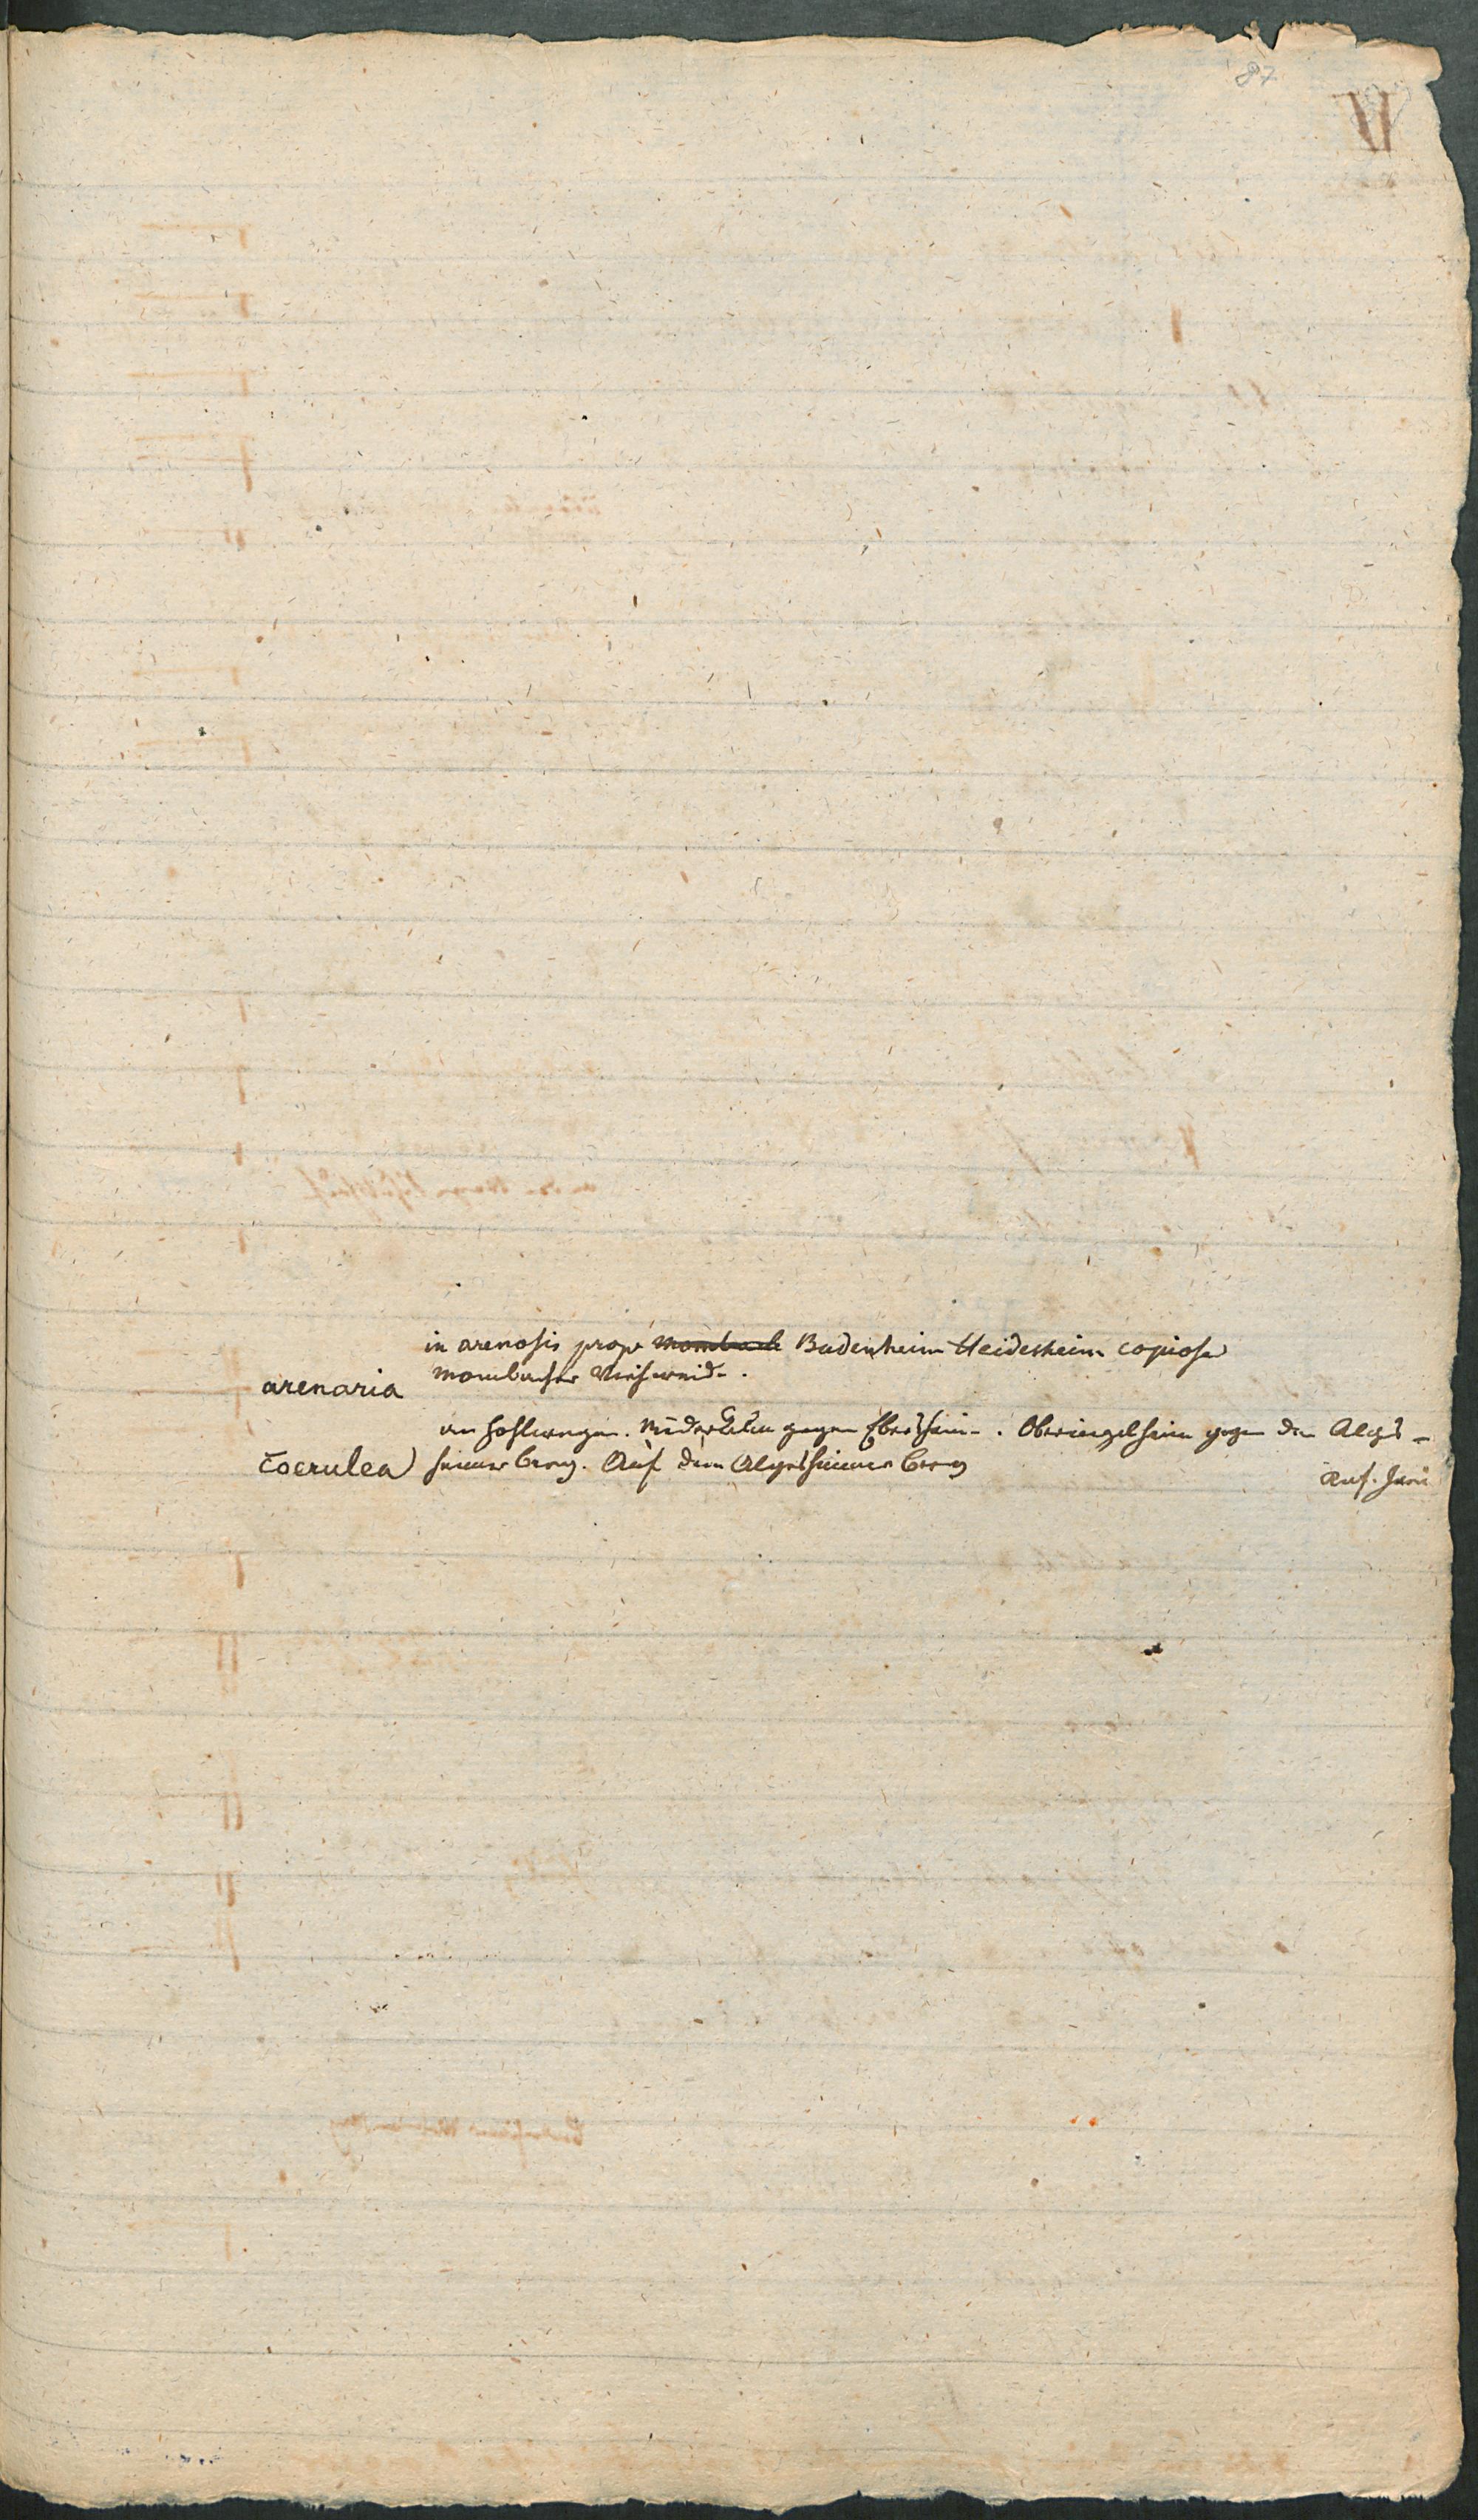 87
VI
in arenosis prope Mombach Budenheim Heidesheim copiose
arenaria Mombacher Viehweide.
an Hohlwegen. Niederolm gegen Ebersheim. Oberingelheim gegen den Alges-
coerulea heimer berg. Auf dem Algesheimer berg
Anf. Juni